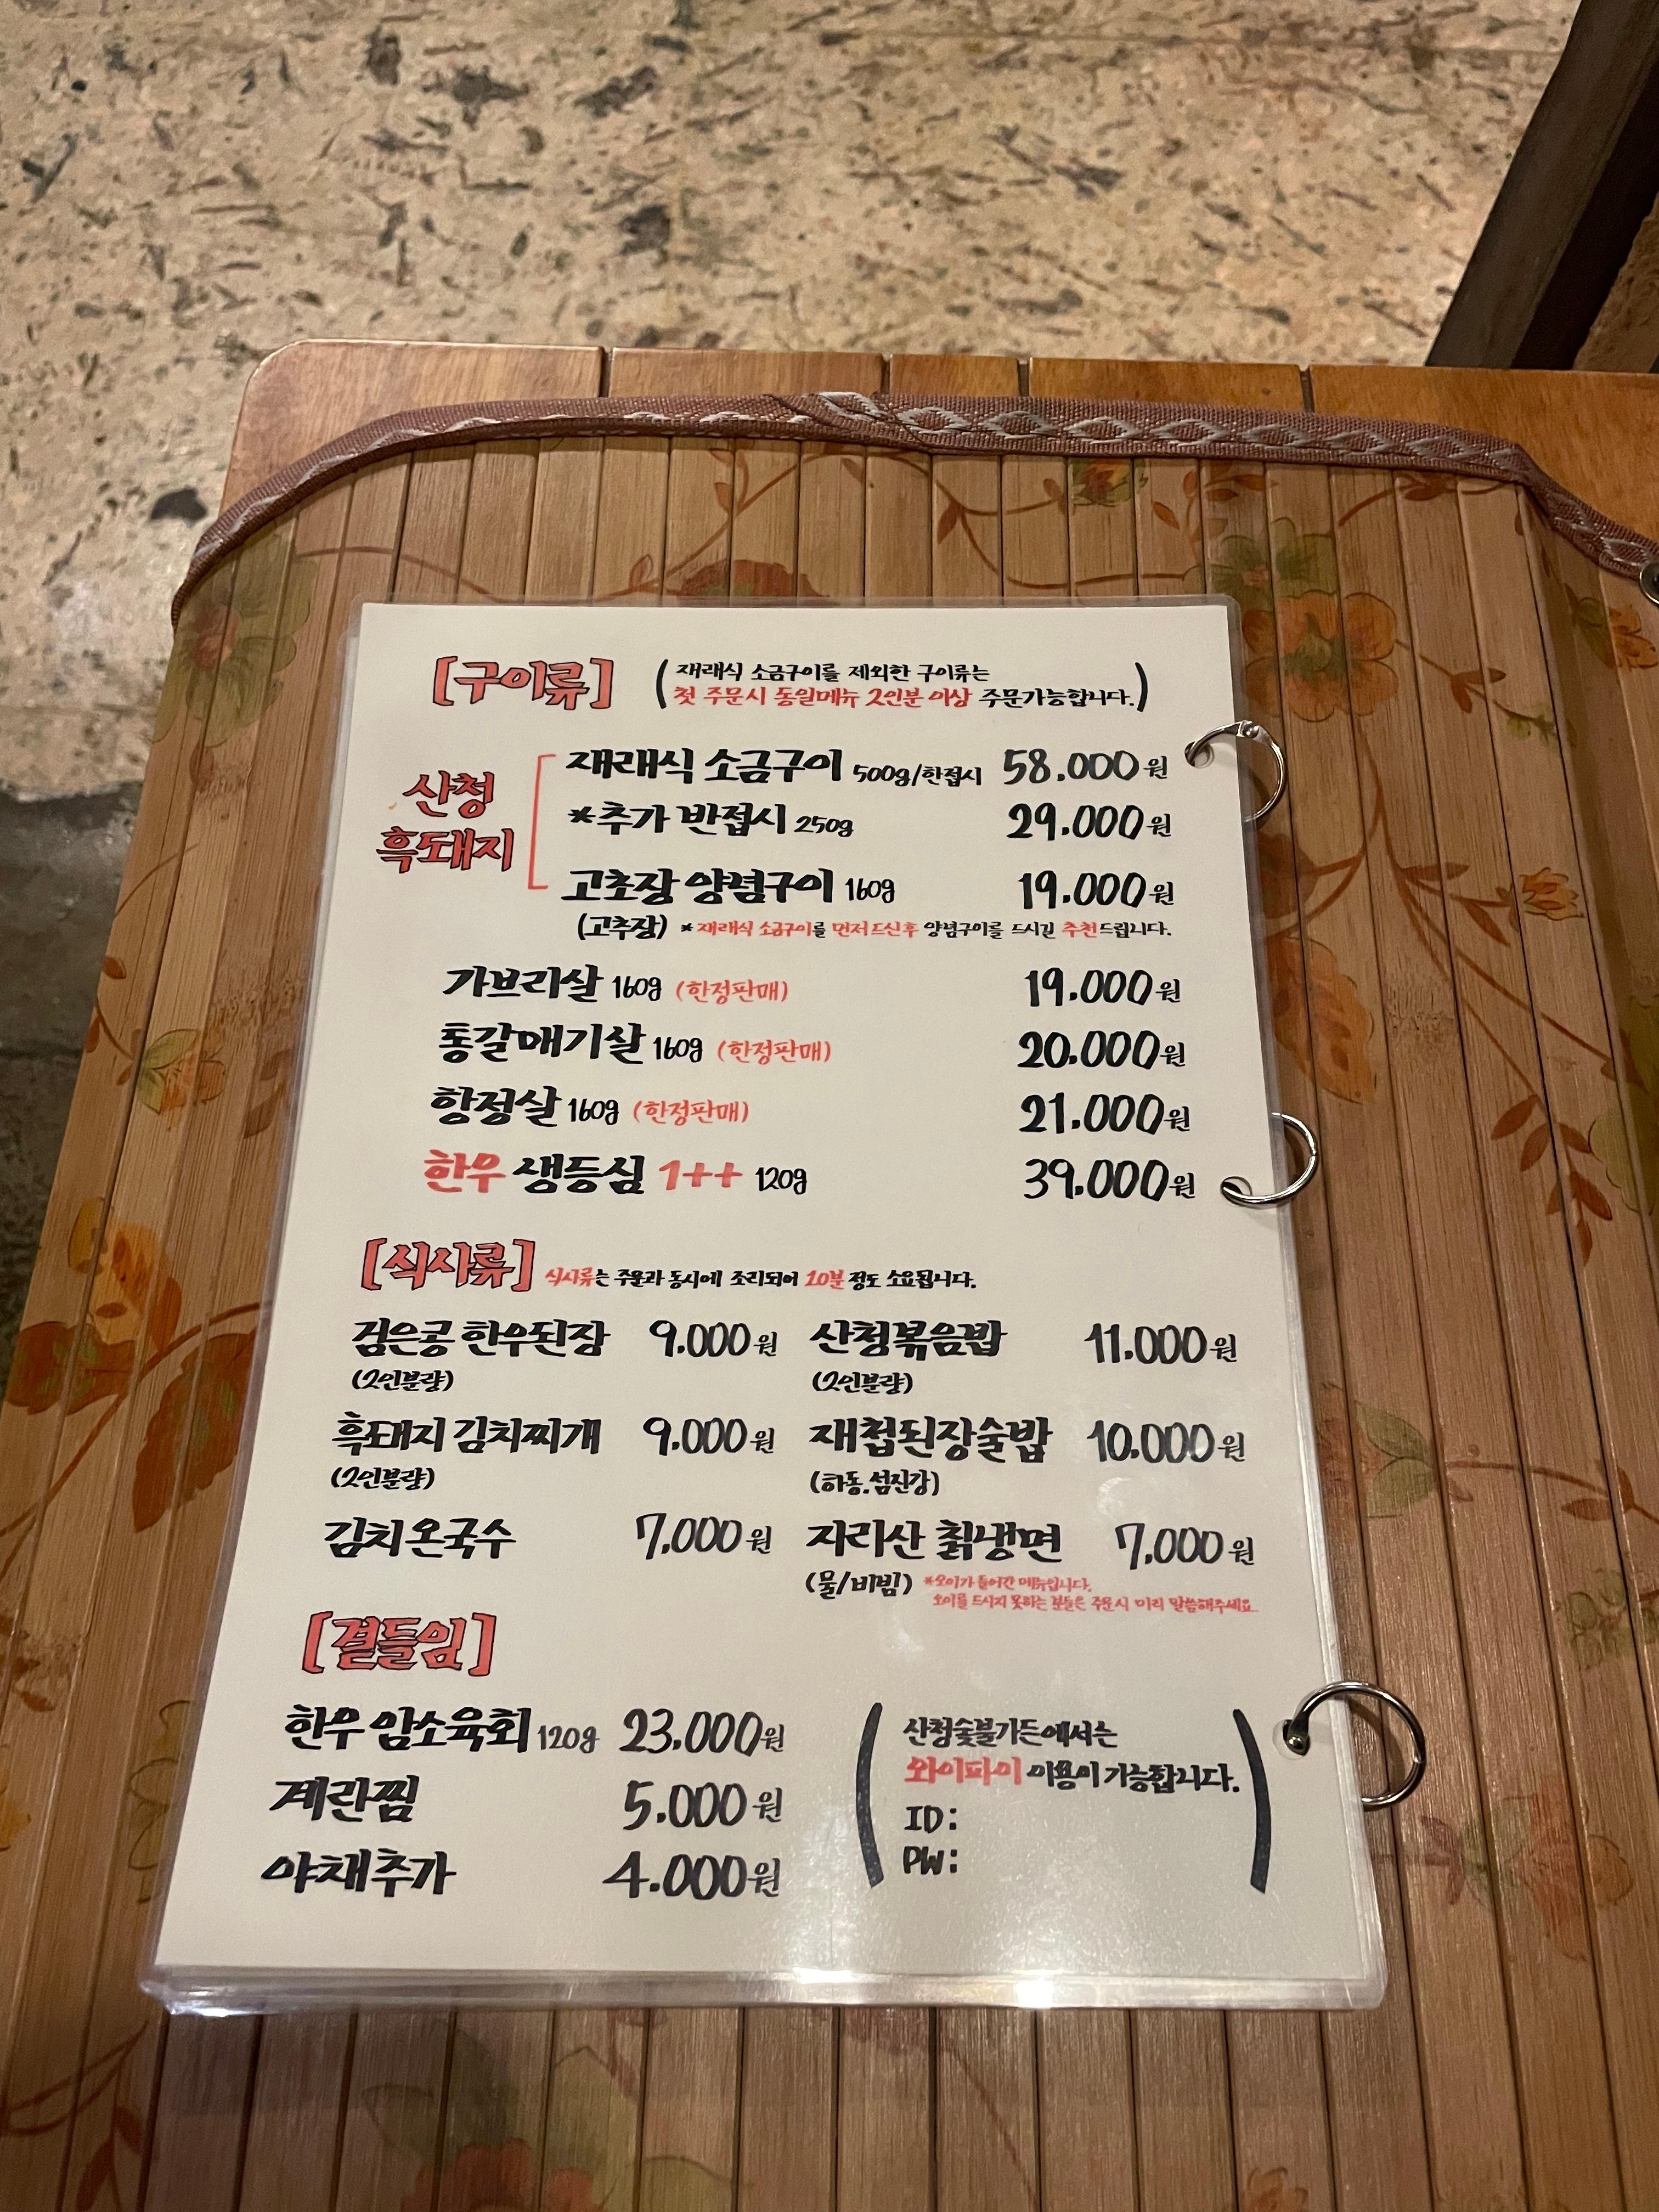 [구이류]
(재래식 소금구이를 제외한 구이류는
첫 주문시 동일메뉴 2인분 이상 주문가능합니다.)
산청
흑돼지
재래식 소금구이 500g/한접시 58.000원
*추가 반접시 250g 29.000원
고초장 양념구이 160g 19.000원
(고추장) *재래식 소금구이를 먼저 드신후 양념구이를 드시길 추천드립니다.
가브리살 160g (한정판매) 19.000원
통갈매기살 160g (한정판매) 20.000원
항정살 160g (한정판매) 21.000원
한우 생등심 1++ 120g 39.000원
[식사류] 식사류는 주문과 동시에 조리되어 10분 정도 소요됩니다.
검은콩 한우된장 9.000원 산청볶음밥 11.000원
(2인분량) (2인분량)
흑돼지 김치찌개 9.000원 재첩된장술밥 10.000원
(2인분량) (하동.섬진강)
김치온국수 7,000원 지리산 칡냉면 7,000원
(물/비빔) *오이가 들어간 메뉴입니다.
오이를 드시지 못하는 분들은 주문시 미리 말씀해주세요.
[곁들임]
한우 암소육회 120g 23.000원
계란찜 5.000원
야채추가 4.000원
(산청숯불가든에서는
와이파이 이용이 가능합니다.
ID:
PW:)